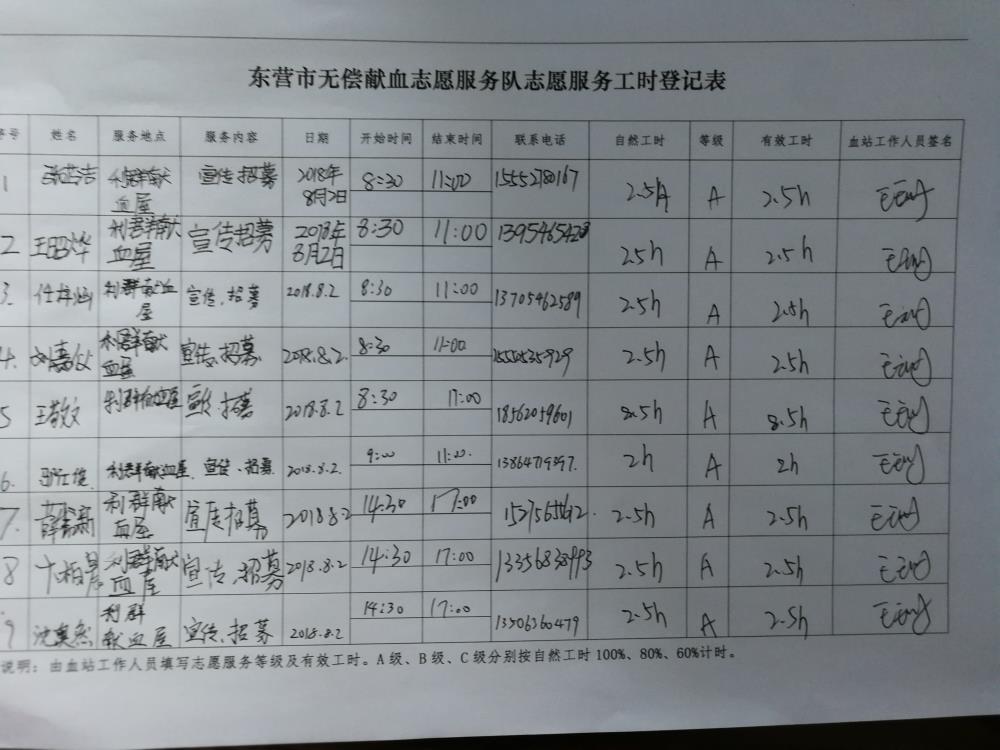 东营市无偿献血志愿服务队志愿服务工时登记表
序号 姓名 服务地点 服务内容 日期 开始时间 结束时间 联系电话 自然工时 等级 有效工时 血站工作人员签名
1 利群献血屋 宣传、招募 2018年8月2日 8:30 11:00 15552780167 2.5h A 2.5h
2 王昭烨 利群献血屋 宣传招募 2018年8月2日 8:30 11:00 13954654228 2.5h A 2.5h
3. 利群献血屋 宣传、招募 2018.8.2 8:30 11:00 13705462589 2.5h A 2.5h
4. 利群献血屋 宣传、招募 2018.8.2. 8:30 11:00 2.5h A 2.5h
5 王敬文 利群献血屋 宣传、招募 2018.8.2 8:30 17:00 18562059601 8.5h A 8.5h
6. 利群献血屋 宣传、招募 2018.8.2. 9:00 11:00. 2h A 2h
7. 利群献血屋 宣传招募 2018.8.2 14:30 17:00 2.5h A 2.5h
8 利群献血屋 宣传、招募 2018.8.2 14:30 17:00 13356838993 2.5h A 2.5h
9 利群献血屋 宣传、招募 2018.8.2 14:30 17:00 13506360479 2.5h A 2.5h
说明：由血站工作人员填写志愿服务等级及有效工时。A 级、B 级、C 级分别按自然工时 100%、80%、60%计时。